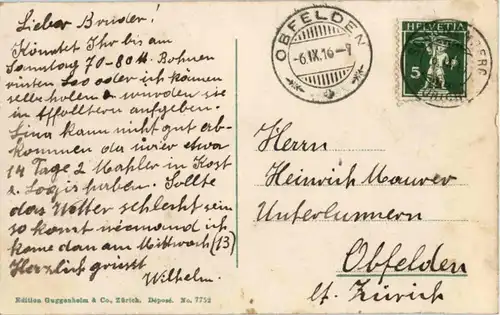 Lieber Bruder!
Könntet Ihr bis am
Samstag 70-80 Bohnen
oder ich können
selbe holen
in Affoltern aufgeben.
Lina kann nicht gut ab-
kommen da wir etwa
14 Tage 2 Mahler in Kost
& Logis haben. Sollte
das Wetter schlecht sein
so komt niemand ich
kome dan am Mittwoch (13)
Herzlich grüsst
Wilhelm.
Edition Guggenheim & Co., Zürich. Déposé. No. 7752
OBFELDEN
-6.IX.16-7
HELVETIA
5
BERG
Herrn
Heinrich Maurer
Unterlunnern
Obfelden
Kt. Zürich